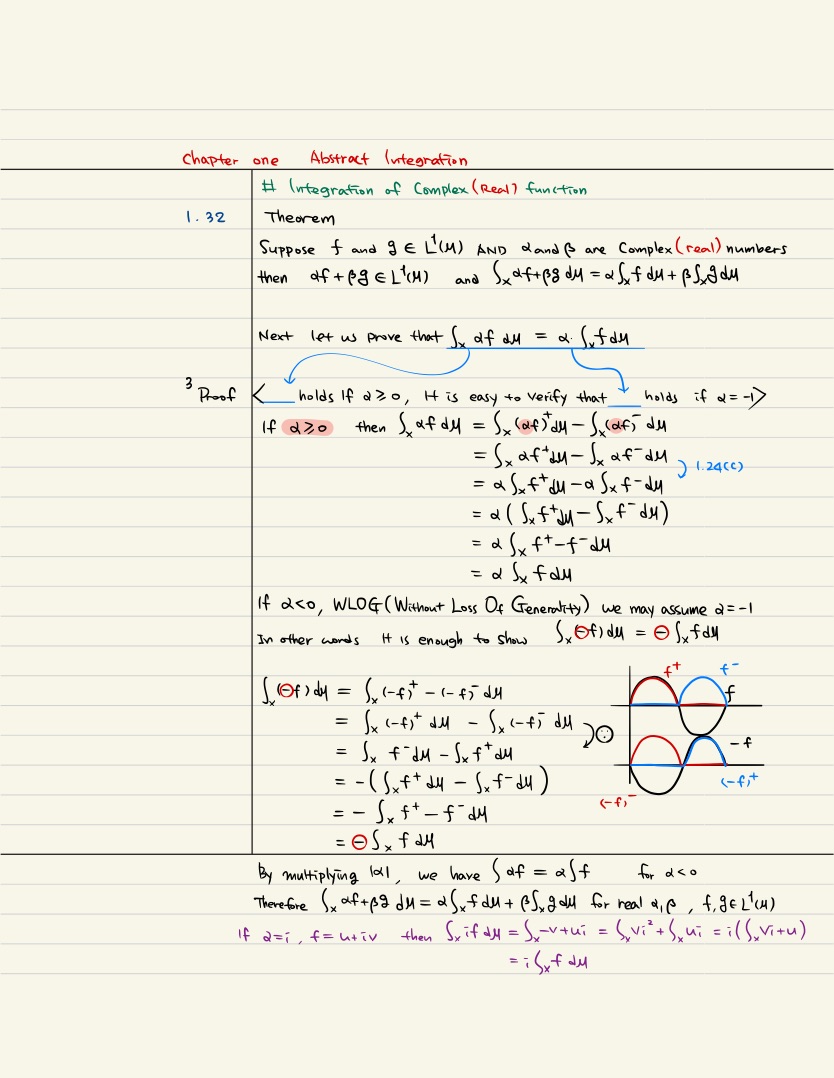 Chapter one Abstract Integration
# Integration of Complex (Real) function
1.32 Theorem
Suppose f and g ∈ L¹(M) AND α and β are Complex (real) numbers
then αf + βg ∈ L¹(M) and ∫ₓ αf+βg dM = α∫ₓ f dM + β∫ₓ g dM
Next let us prove that ∫ₓ αf dM = α·∫ₓ f dM
3 Proof < ___ holds If α ≥ 0, It is easy to verify that ___ holds if α = -1 >
If α ≥ 0 then ∫ₓ αf dM = ∫ₓ (αf)⁺ dM − ∫ₓ (αf)⁻ dM
= ∫ₓ αf⁺ dM − ∫ₓ αf⁻ dM
1.24(c)
= α∫ₓ f⁺ dM − α∫ₓ f⁻ dM
= α(∫ₓ f⁺ dM − ∫ₓ f⁻ dM)
= α∫ₓ f⁺ − f⁻ dM
= α∫ₓ f dM
If α<0, WLOG (Without Loss Of Generality) we may assume α = -1
In other words It is enough to show ∫ₓ (−f) dM = −∫ₓ f dM
∫ₓ (−f) dM = ∫ₓ (−f)⁺ − (−f)⁻ dM
= ∫ₓ (−f)⁺ dM − ∫ₓ (−f)⁻ dM
= ∫ₓ f⁻ dM − ∫ₓ f⁺ dM
= −(∫ₓ f⁺ dM − ∫ₓ f⁻ dM)
= − ∫ₓ f⁺ − f⁻ dM
= −∫ₓ f dM
f⁺ f⁻
f
−f
(−f)⁻ (−f)⁺
By multiplying |α|, we have ∫ αf = α∫f for α<0
Therefore ∫ₓ αf+βg dM = α∫ₓ f dM + β∫ₓ g dM for real α, β, f, g ∈ L¹(M)
If α=i, f = u+iv then ∫ₓ if dM = ∫ₓ −v+ui = ∫ₓ vi² + ∫ₓ ui = i(∫ₓ vi+u)
= i∫ₓ f dM